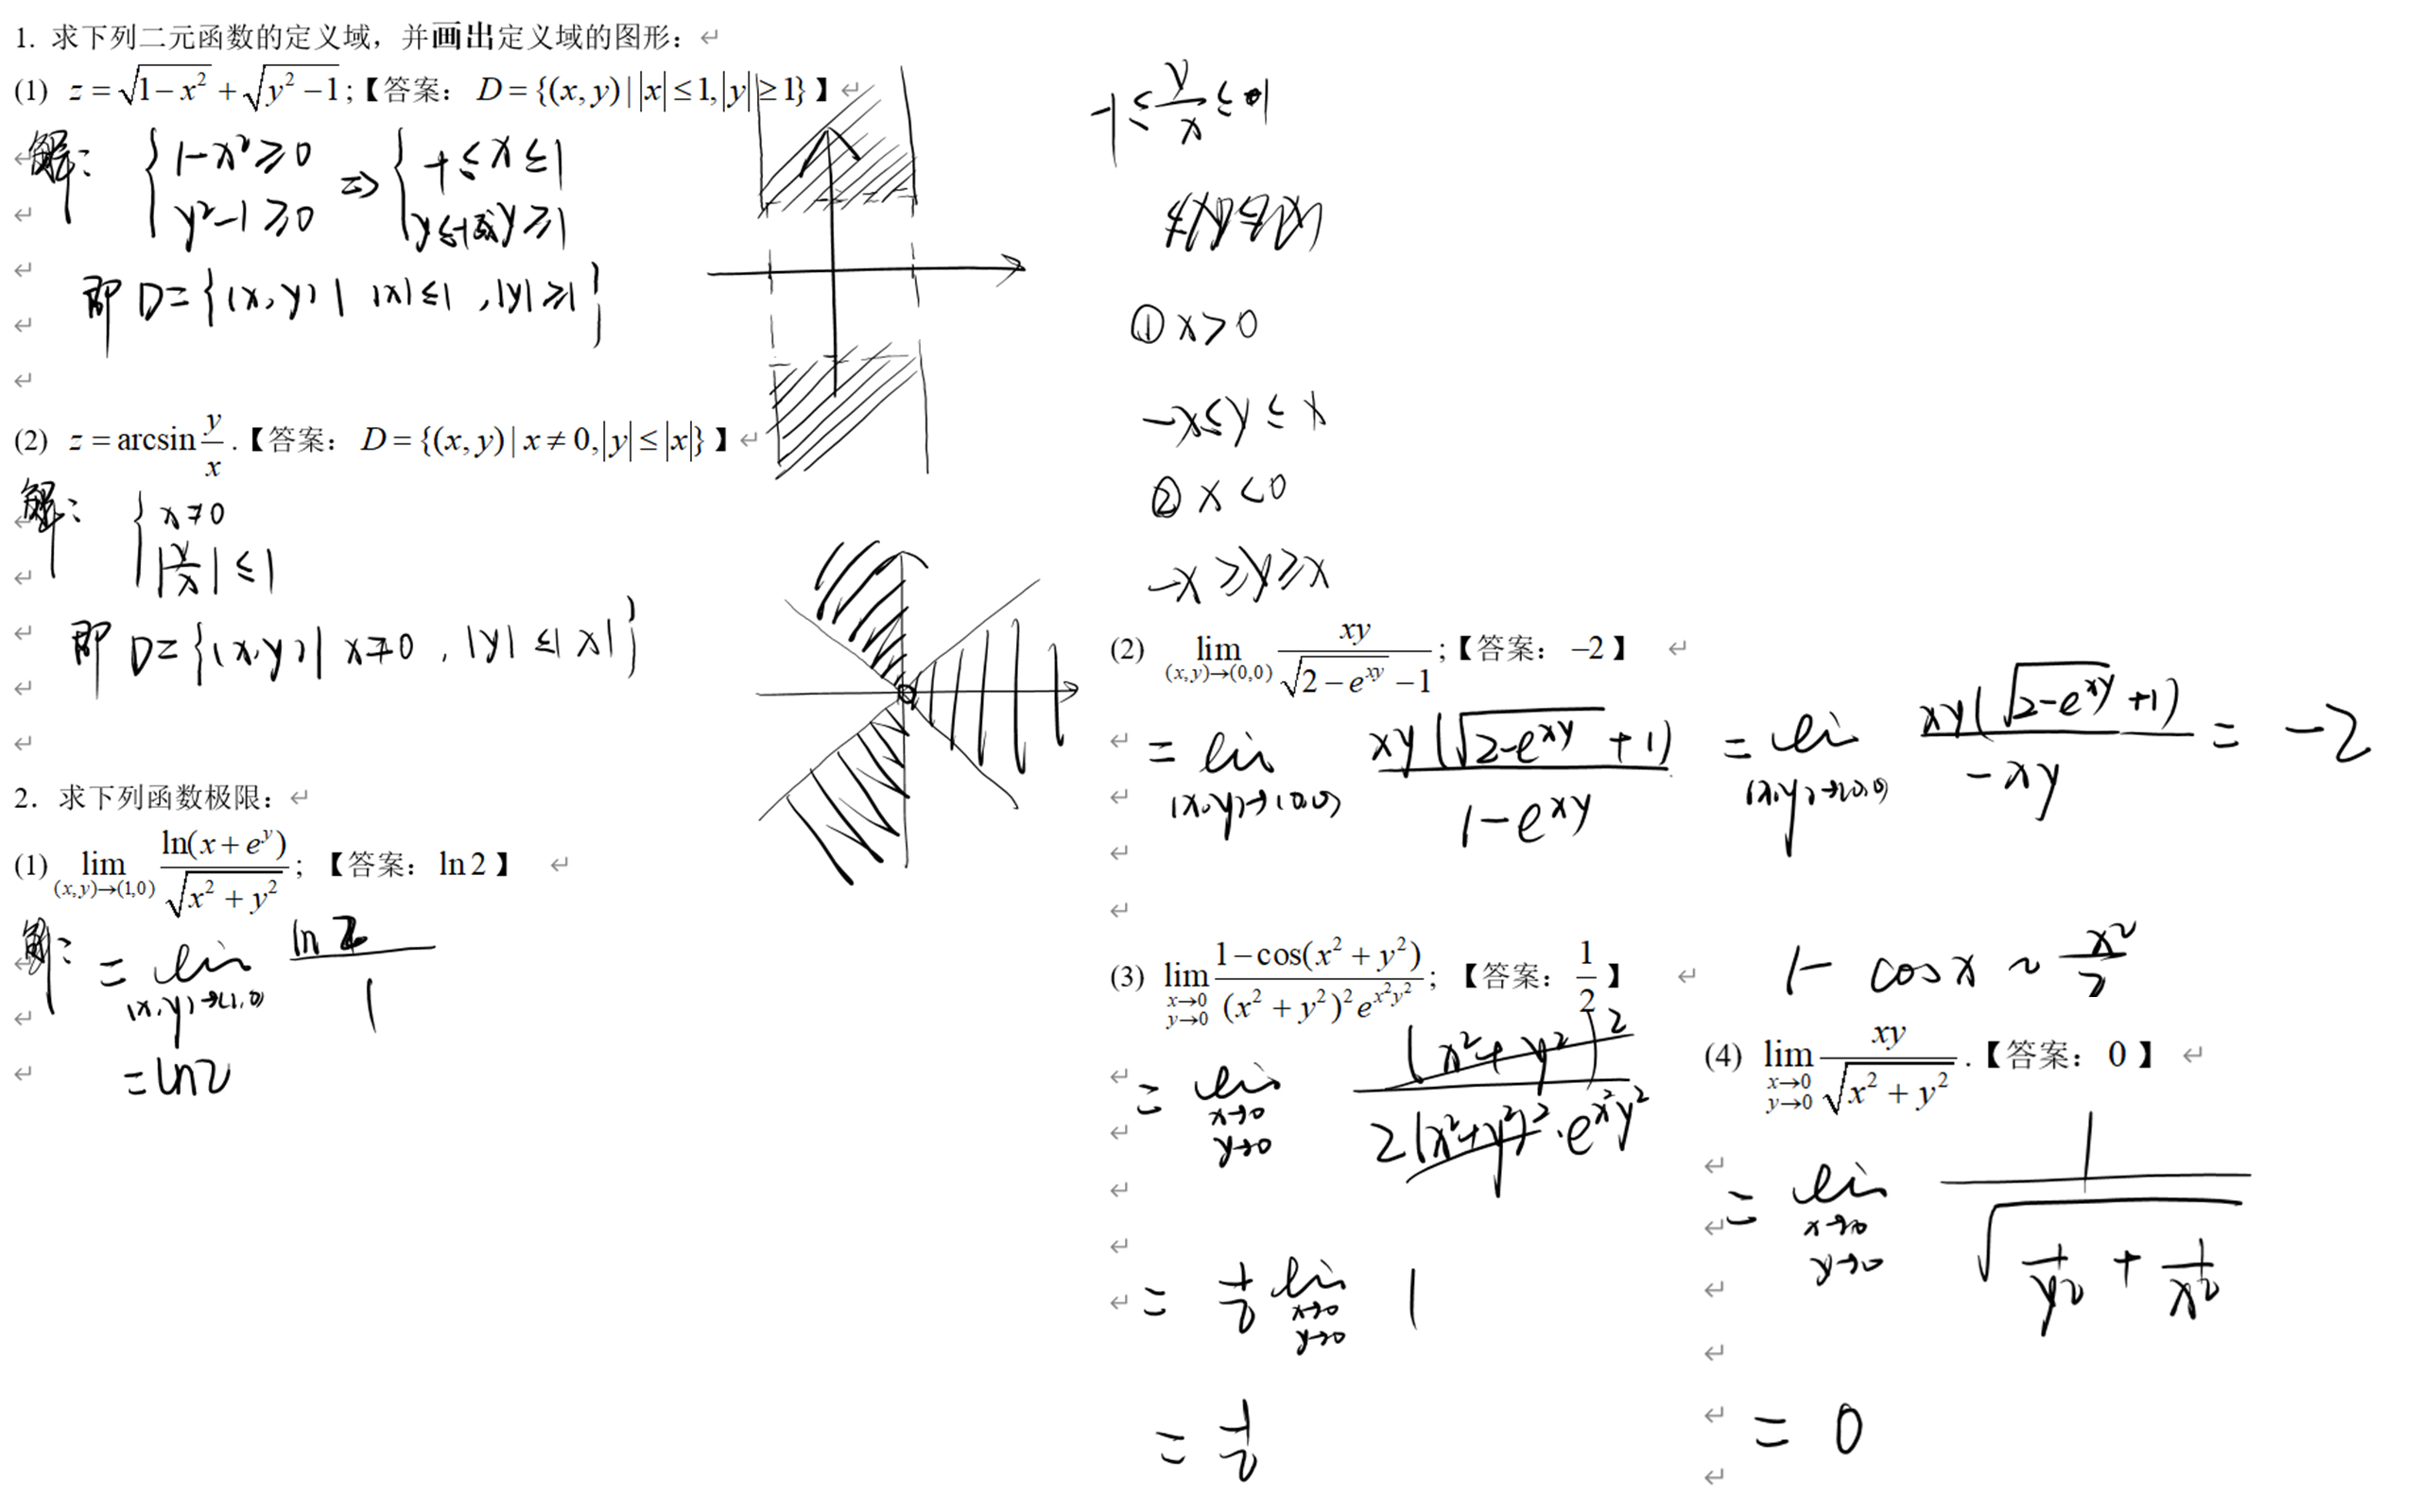 1. 求下列二元函数的定义域，并画出定义域的图形：
(1) z=√(1−x²)+√(y²−1);【答案：D={(x,y)||x|≤1,|y|≥1}】
解：{1-x²≥0 ⇒ {-1≤x≤1
y²-1≥0 y≤-1或y≥1
即 D={(x,y)| |x|≤1,|y|≥1}
(2) z=arcsin y/x.【答案：D={(x,y)|x≠0,|y|≤|x|}】
解：{x≠0
|y/x|≤1
即 D={(x,y)| x≠0, |y|≤|x|}
2. 求下列函数极限：
(1) lim (x,y)→(1,0) ln(x+e^y)/√(x²+y²);【答案：ln2】
解：= lim (x,y)→(1,0) ln2/1
=ln2
-1≤y/x≤1
① x>0
-x≤y≤x
② x<0
-x≥y≥x
(2) lim (x,y)→(0,0) xy/(√(2−e^(xy))−1);【答案：−2】
= lim (x,y)→(0,0) xy(√(2-e^(xy))+1)/(1-e^(xy)) = lim (x,y)→(0,0) xy(√(2-e^(xy))+1)/(-xy) = -2
(3) lim x→0 y→0 (1−cos(x²+y²))/((x²+y²)²e^(x²y²));【答案：1/2】
1-cosx ~ x²/2
= lim x→0 y→0 (x²+y²)²/(2(x²+y²)²·e^(x²y²))
= 1/2 lim x→0 y→0 1
= 1/2
(4) lim x→0 y→0 xy/√(x²+y²).【答案：0】
= lim x→0 y→0 1/√(1/y²+1/x²)
= 0